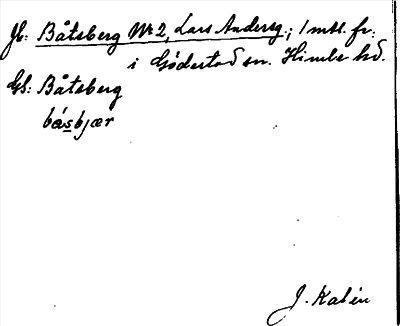 Jb: Båtsberg No 2, Lars Andersg.; 1 mtl. fr:
i Gödestad sn. Himle hd.
Gs: Båtsberg
båsbjær
J. Kalén